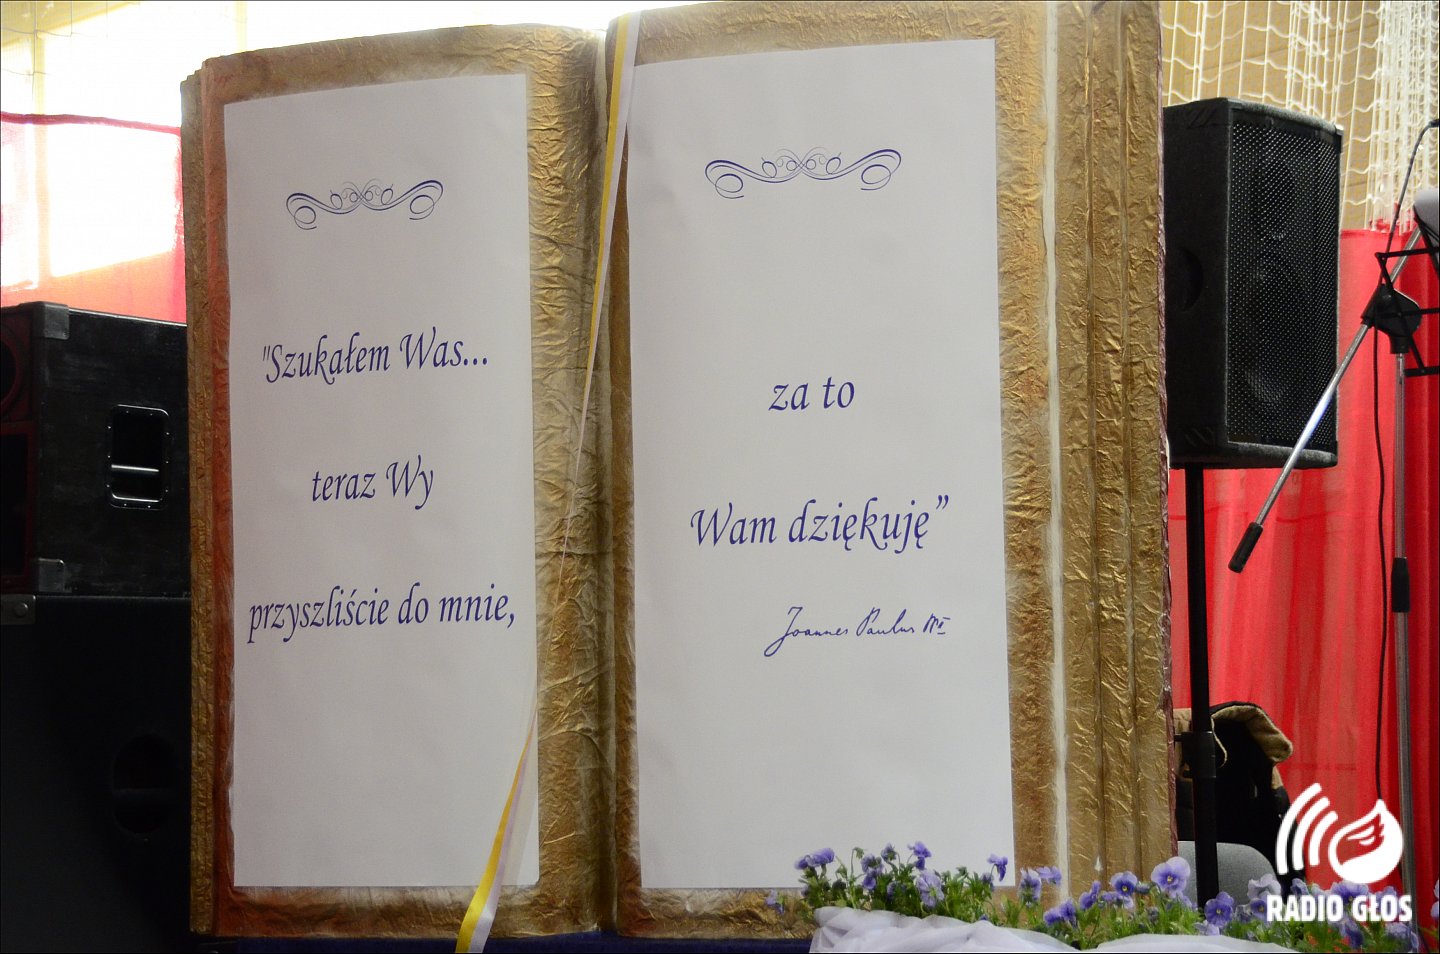 "Szukałem Was...
teraz Wy
przyszliście do mnie,
za to
Wam dziękuję”
Joannes Paulus II
RADIO GŁOS